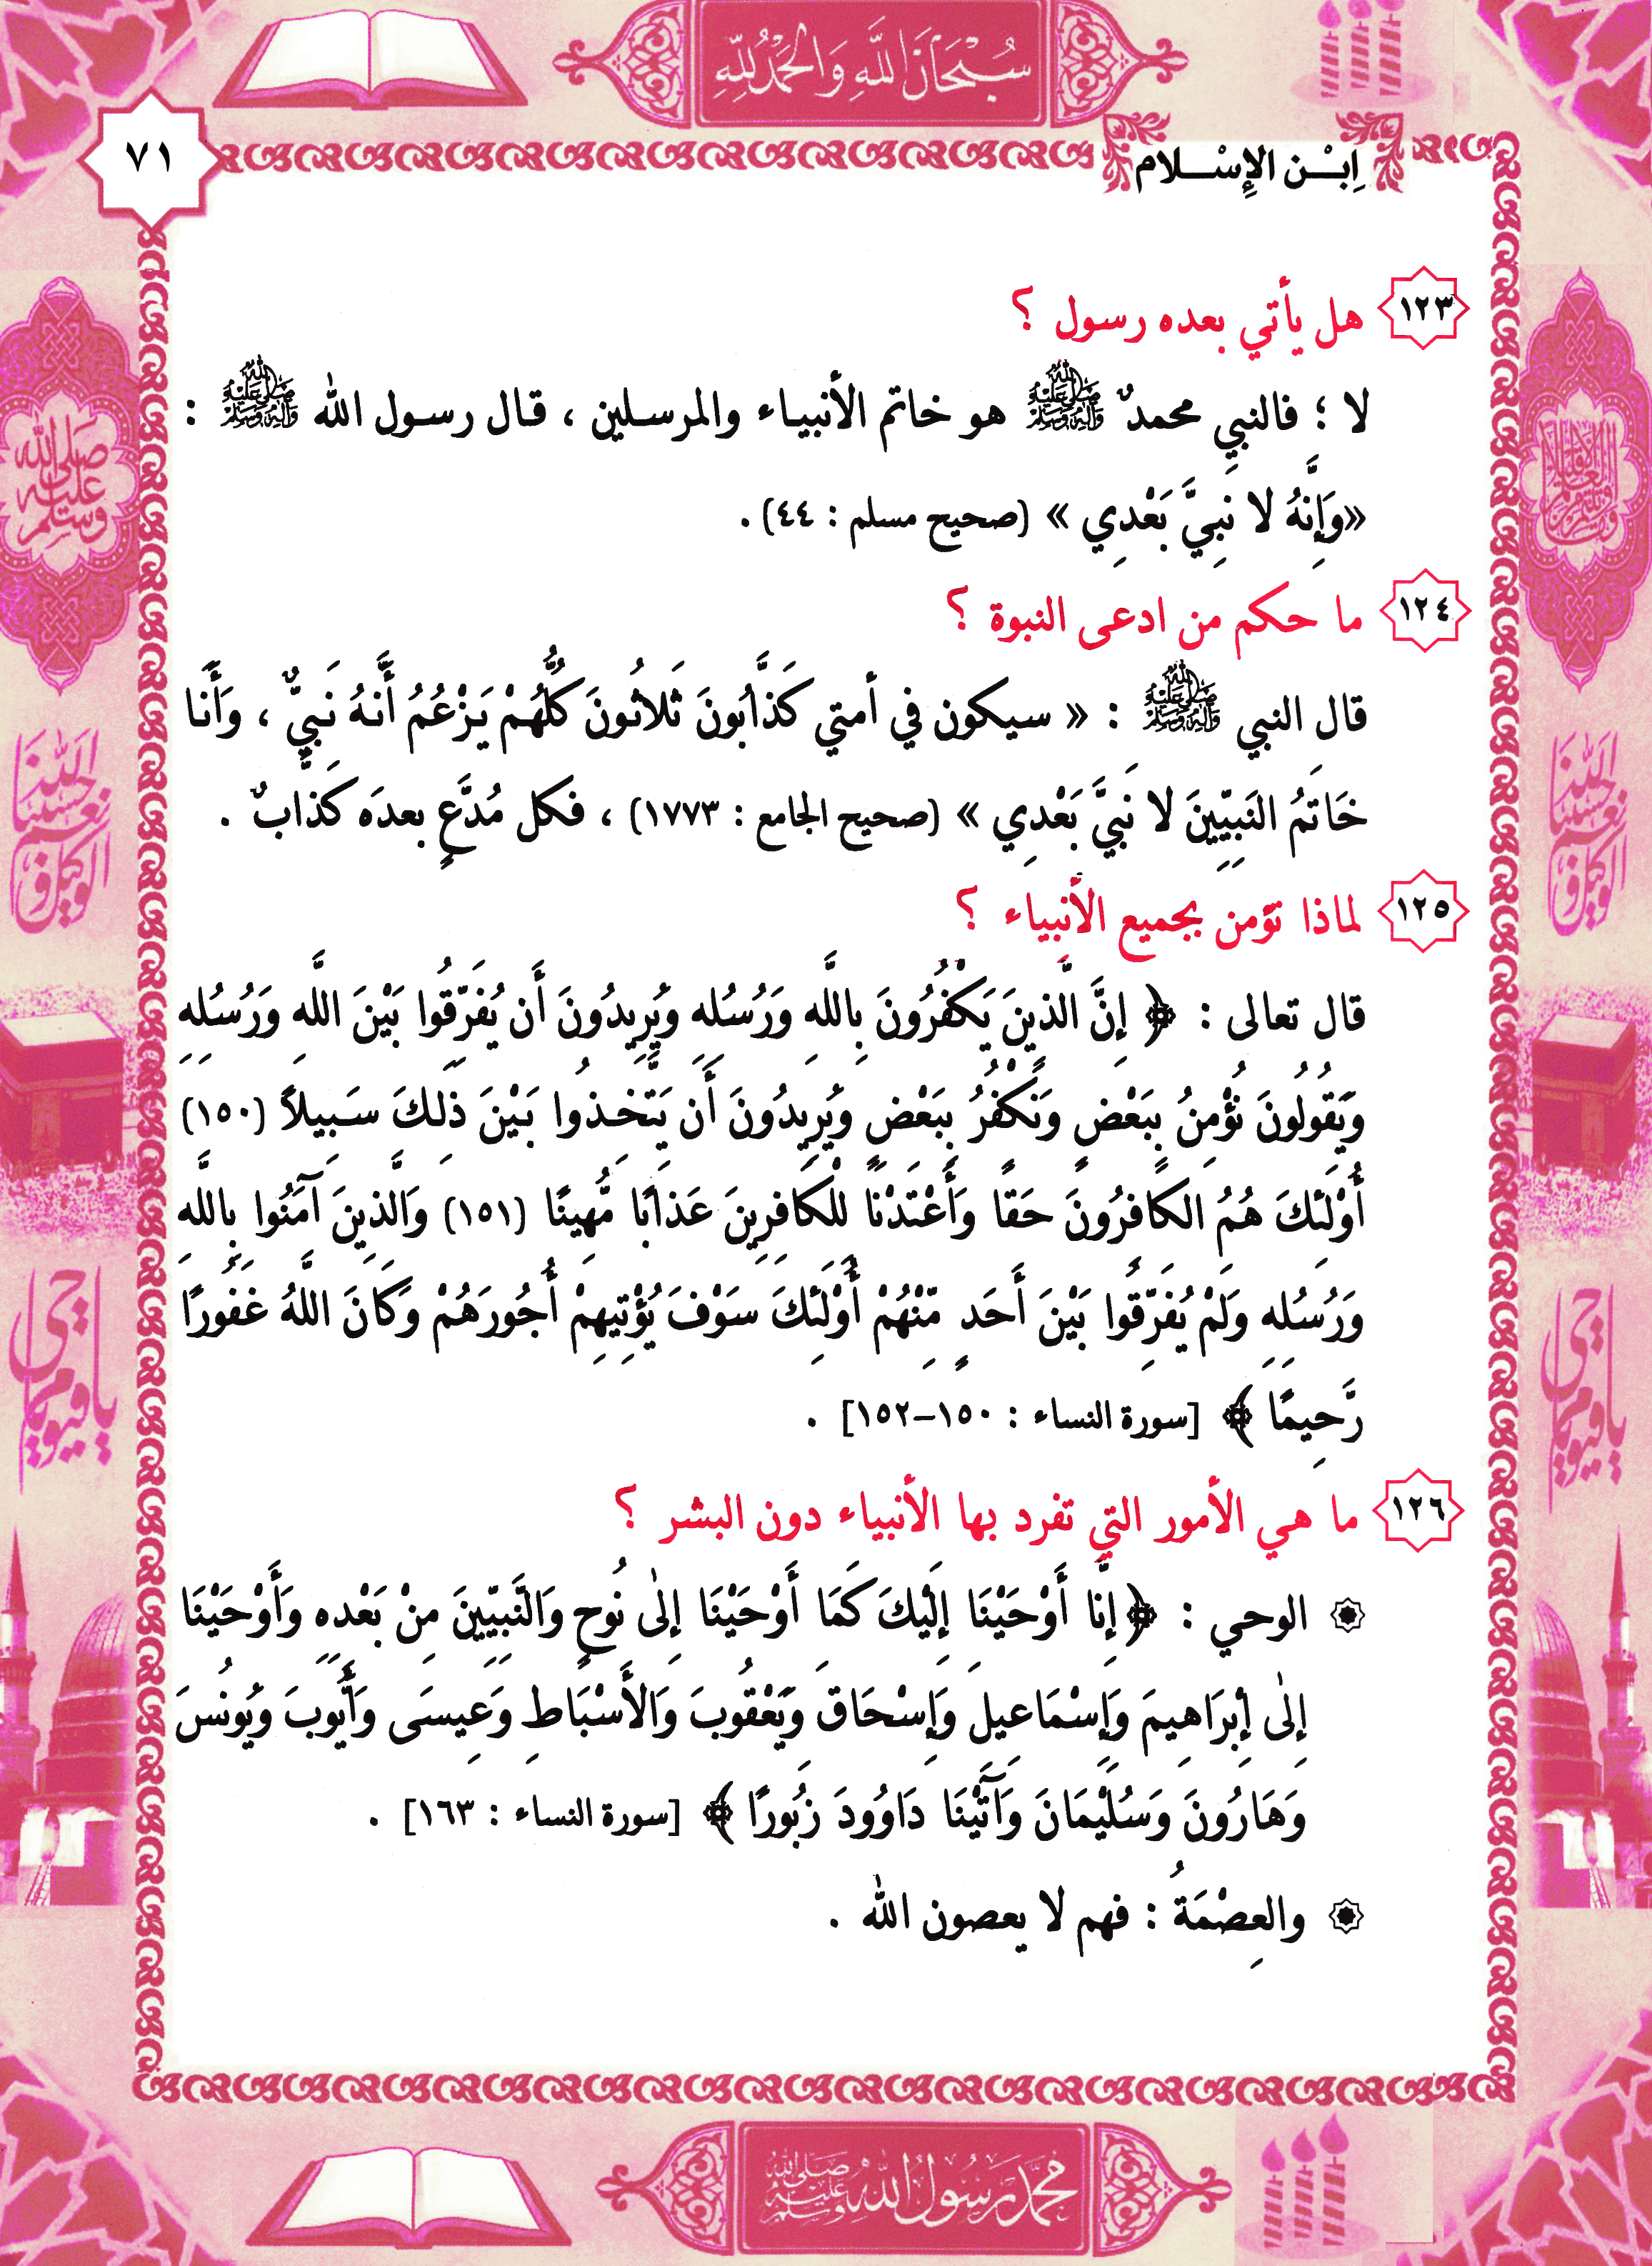 سُبْحَانَ اللَّهِ وَالحَمْدُ لِلَّهِ
اِبْـن الإِسْـلام
٧١
١٢٣ هل يأتي بعده رسول ؟
لا ؛ فالنبي محمدٌ ﷺ هو خاتم الأنبيـاء والمرسـلين ، قـال رسـول الله ﷺ :
«وَإِنَّهُ لا نَبِيَّ بَعْدِي » (صحيح مسلم : ٤٤) .
١٢٤ ما حكم من ادعى النبوة ؟
قال النبي ﷺ : « سيكون في أمتي كَذَّابُونَ ثَلاثُونَ كُلُّهُمْ يَزْعُمُ أَنَّهُ نَبِيٌّ ، وَأَنَا
خَاتَمُ النَبِيِّينَ لا نَبِيَّ بَعْدِي » (صحيح الجامع : ١٧٧٣) ، فكل مُدَّعٍ بعدَه كَذابٌ .
١٢٥ لماذا تؤمن بجميع الأنبياء ؟
قال تعالى : ﴿ إِنَّ الَّذِينَ يَكْفُرُونَ بِاللَّهِ وَرُسُلِهِ وَيُرِيدُونَ أَن يُفَرِّقُوا بَيْنَ اللَّهِ وَرُسُلِهِ
وَيَقُولُونَ نُؤْمِنُ بِبَعْضٍ وَنَكْفُرُ بِبَعْضٍ وَيُرِيدُونَ أَن يَتَّخِـذُوا بَـيْنَ ذَلِـكَ سَـبِيلاً (١٥٠)
أُوْلَئِكَ هُمُ الكَافِرُونَ حَقًا وَأَعْتَدْنَا لِلْكَافِرِينَ عَذَابًا مُّهِينًا (١٥١) وَالَّذِينَ آمَنُوا بِاللَّهِ
وَرُسُلِهِ وَلَمْ يُفَرِّقُوا بَيْنَ أَحَدٍ مِّنْهُمْ أُوْلَئِكَ سَوْفَ يُؤْتِيهِمْ أُجُورَهُمْ وَكَانَ اللَّهُ غَفُورًا
رَّحِيمًا ﴾ [سورة النساء : ١٥٠–١٥٢] .
١٢٦ ما هي الأمور التي تفرد بها الأنبياء دون البشر ؟
الوحي : ﴿إِنَّا أَوْحَيْنَا إِلَيْكَ كَمَا أَوْحَيْنَا إِلَى نُوحٍ وَالنَّبِيِّينَ مِنْ بَعْدِهِ وَأَوْحَيْنَا
إِلَى إِبْرَاهِيمَ وَإِسْمَاعِيلَ وَإِسْحَاقَ وَيَعْقُوبَ وَالأَسْبَاطِ وَعِيسَى وَأَيُّوبَ وَيُونُسَ
وَهَارُونَ وَسُلَيْمَانَ وَآَتَيْنَا دَاوُودَ زَبُورًا ﴾ [سورة النساء : ١٦٣] .
والعِصْمَةُ : فهم لا يعصون الله .
صلى الله عليه وسلم
حسبنا الله ونعم الوكيل
يا حي يا قيوم
حسبنا الله ونعم الوكيل
يا حي يا قيوم
محمد رسول الله صلى الله عليه وسلم